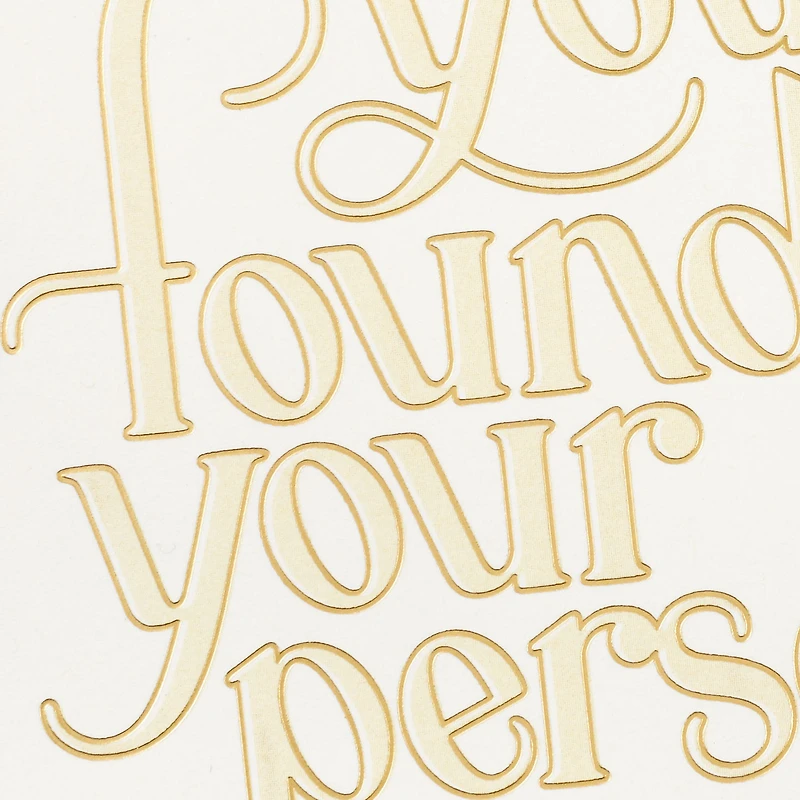 you
found
your
perso